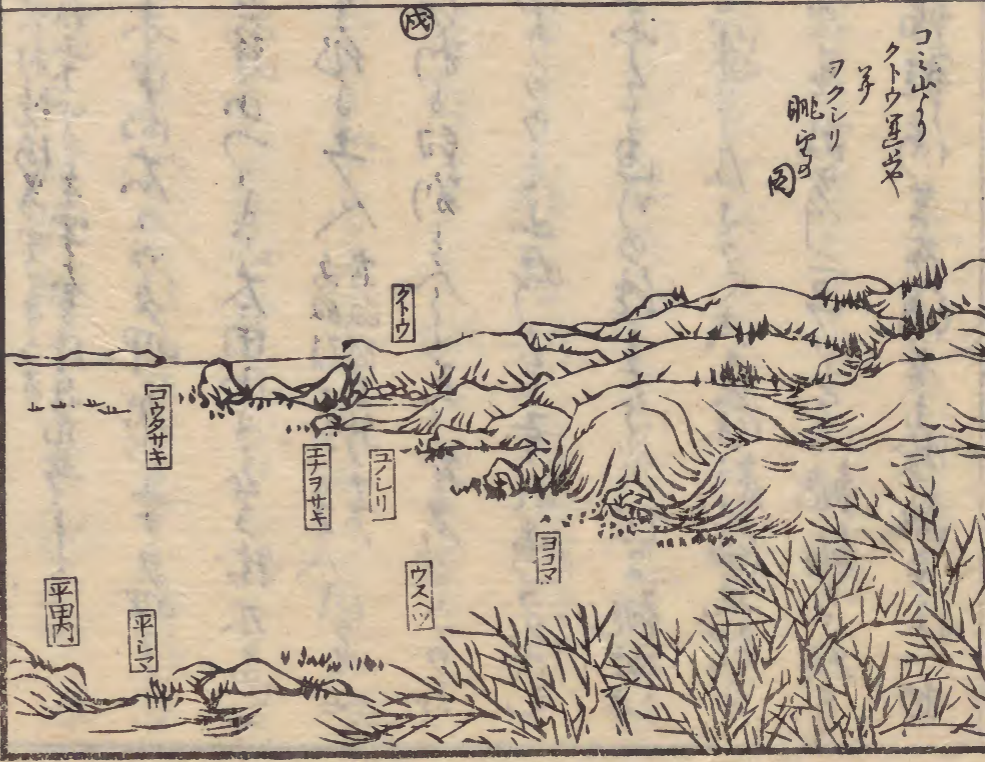 コミ山より
クトウ運上や
并
ヲクシリ
眺望の
図
戌
クトウ
コウタサキ
エナヲサキ
ユノシリ
ヨコマ
ウスヘツ
平シマ
平田内